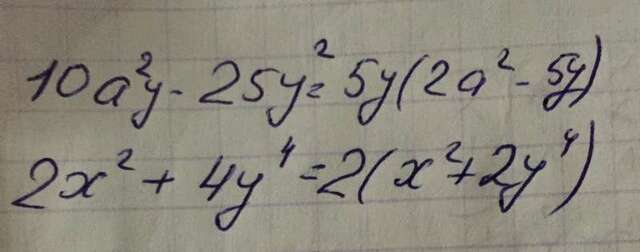 10a²y - 25y² = 5y(2a² - 5y)
2x² + 4y⁴ = 2(x² + 2y⁴)